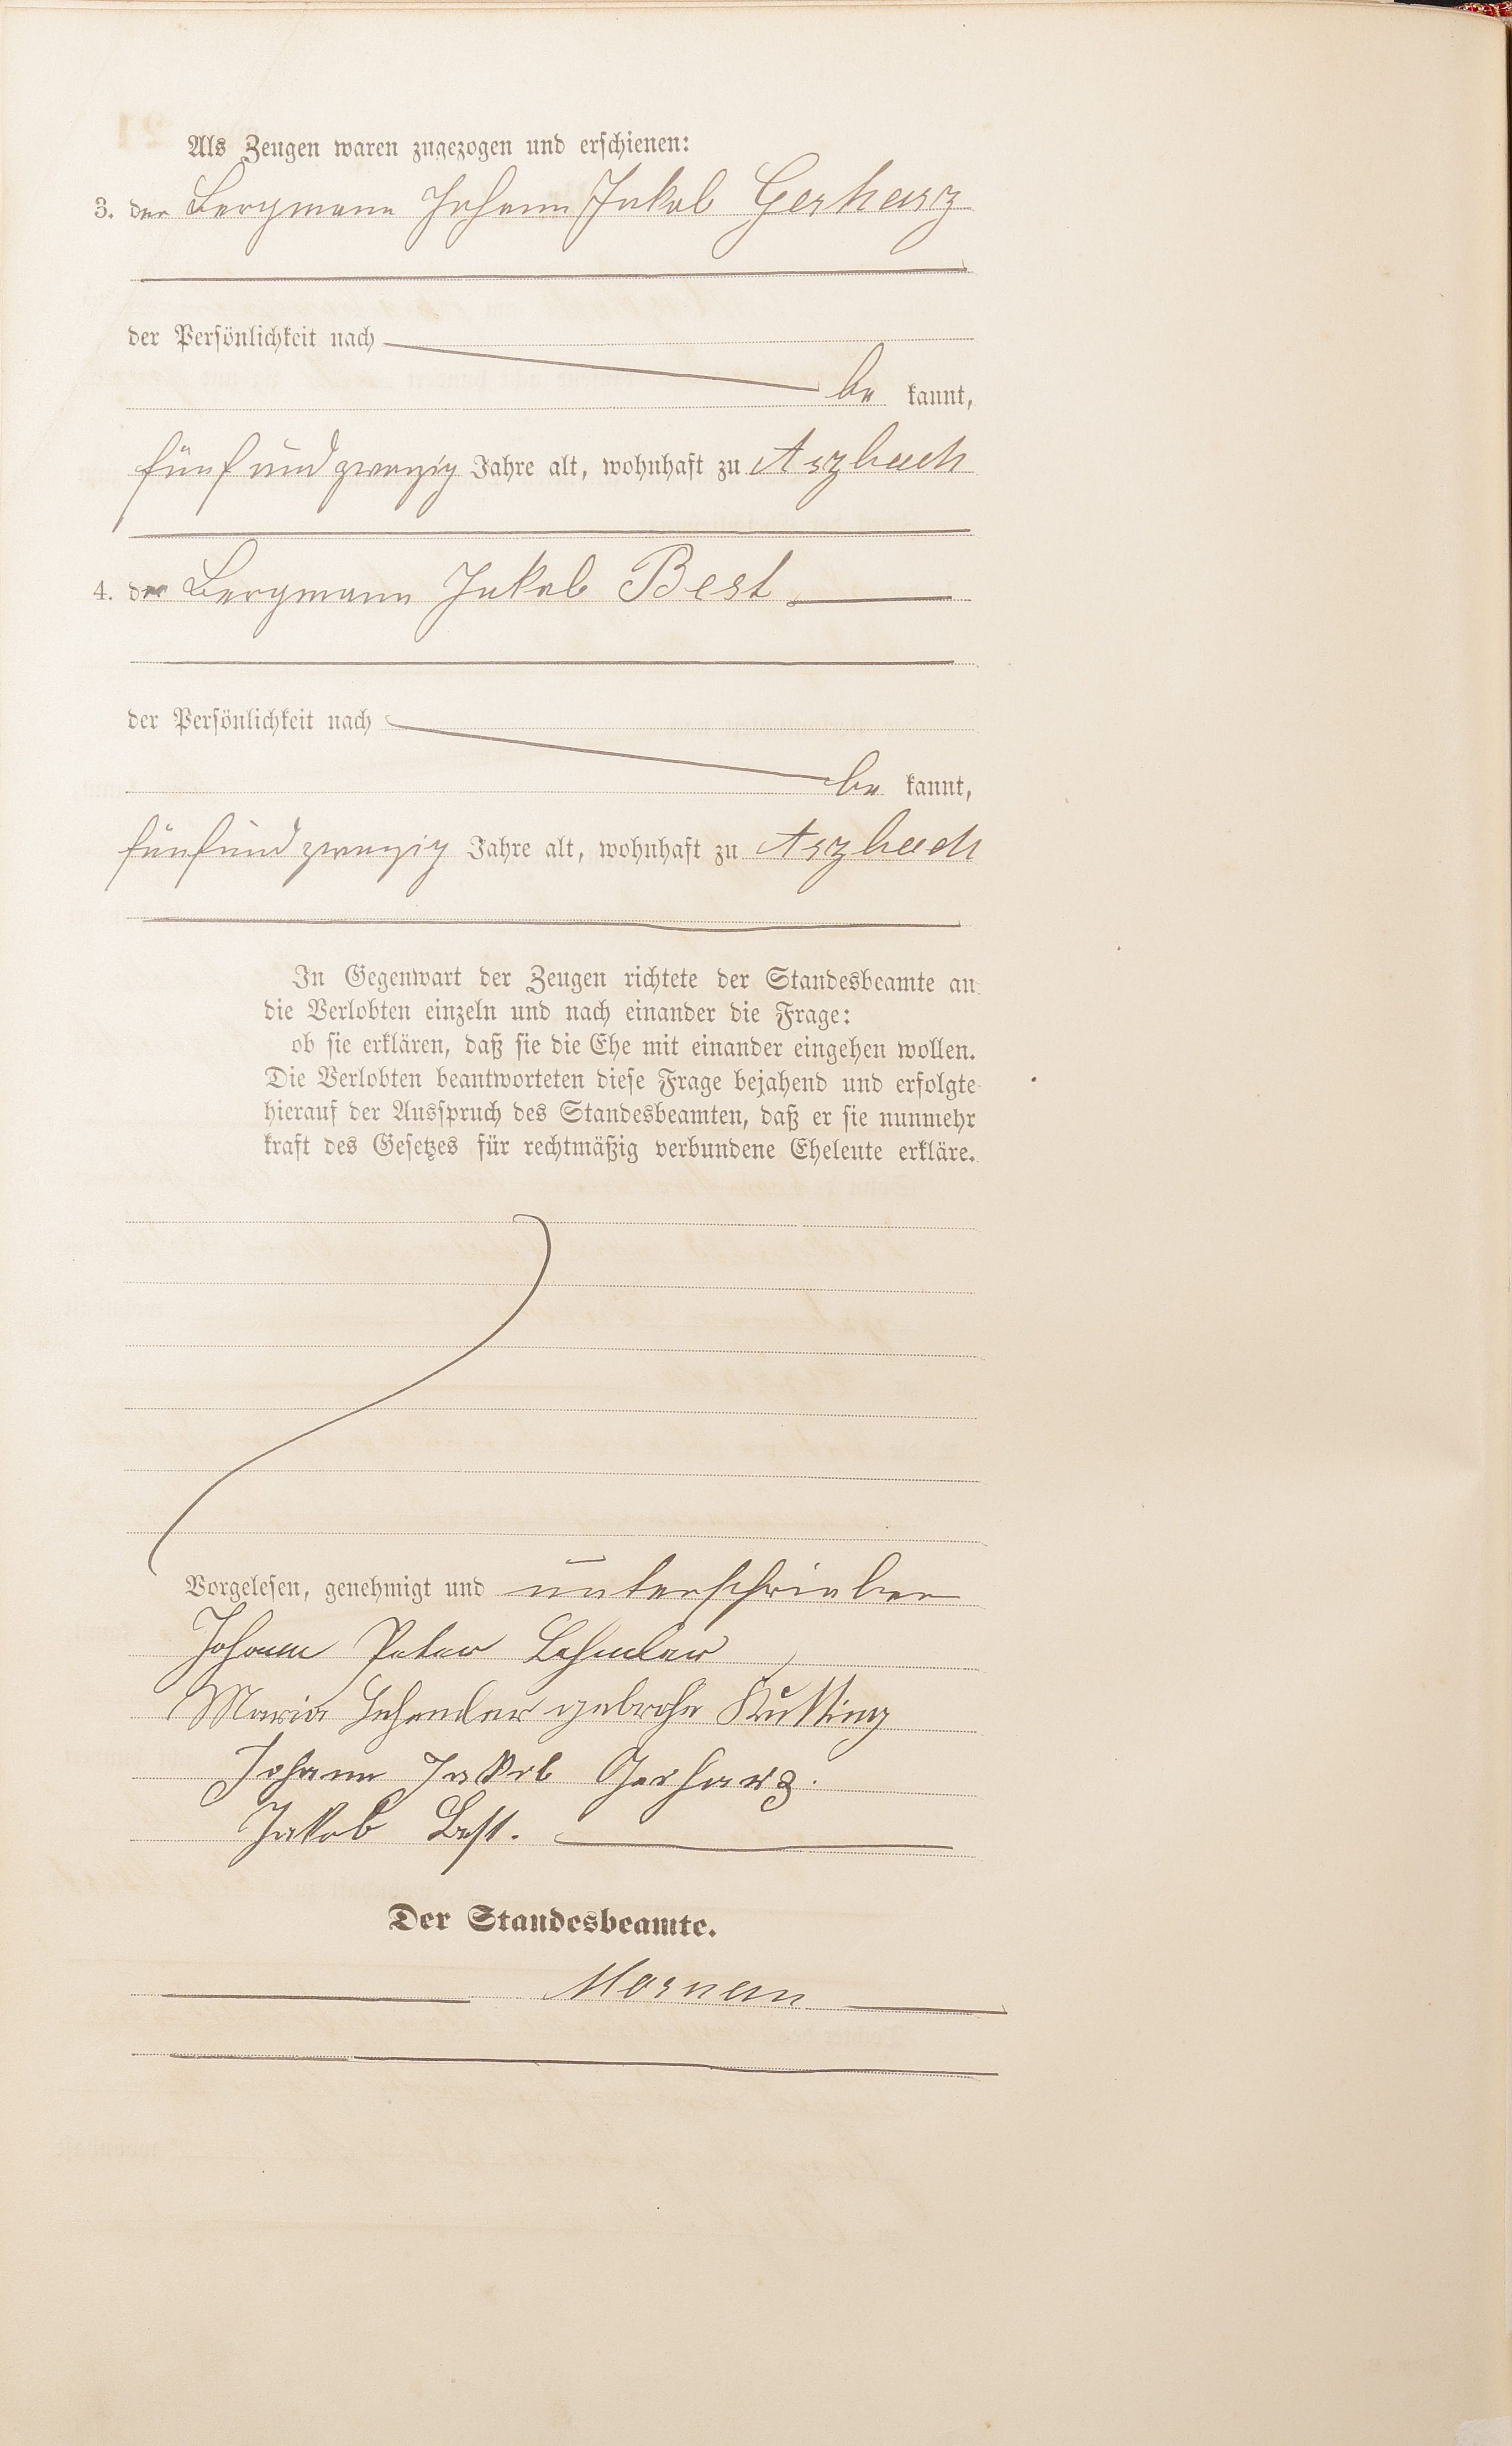 Als Zeugen waren zugezogen und erschienen:
3. der Bergmann Johann Jakob Gerharz
der Persönlichkeit nach
be kannt,
fünfundzwanzig Jahre alt, wohnhaft zu Arzbach
4. der Bergmann Jakob Best
der Persönlichkeit nach
be kannt,
fünfundzwanzig Jahre alt, wohnhaft zu Arzbach
In Gegenwart der Zeugen richtete der Standesbeamte an
die Verlobten einzeln und nach einander die Frage:
ob sie erklären, daß sie die Ehe mit einander eingehen wollen.
Die Verlobten beantworteten diese Frage bejahend und erfolgte
hierauf der Ausspruch des Standesbeamten, daß er sie nunmehr
kraft des Gesetzes für rechtmäßig verbundene Eheleute erkläre.
Vorgelesen, genehmigt und unterschrieben
Johann Peter
Maria
Johann Jakob Gerharz.
Jakob Best.
Der Standesbeamte.